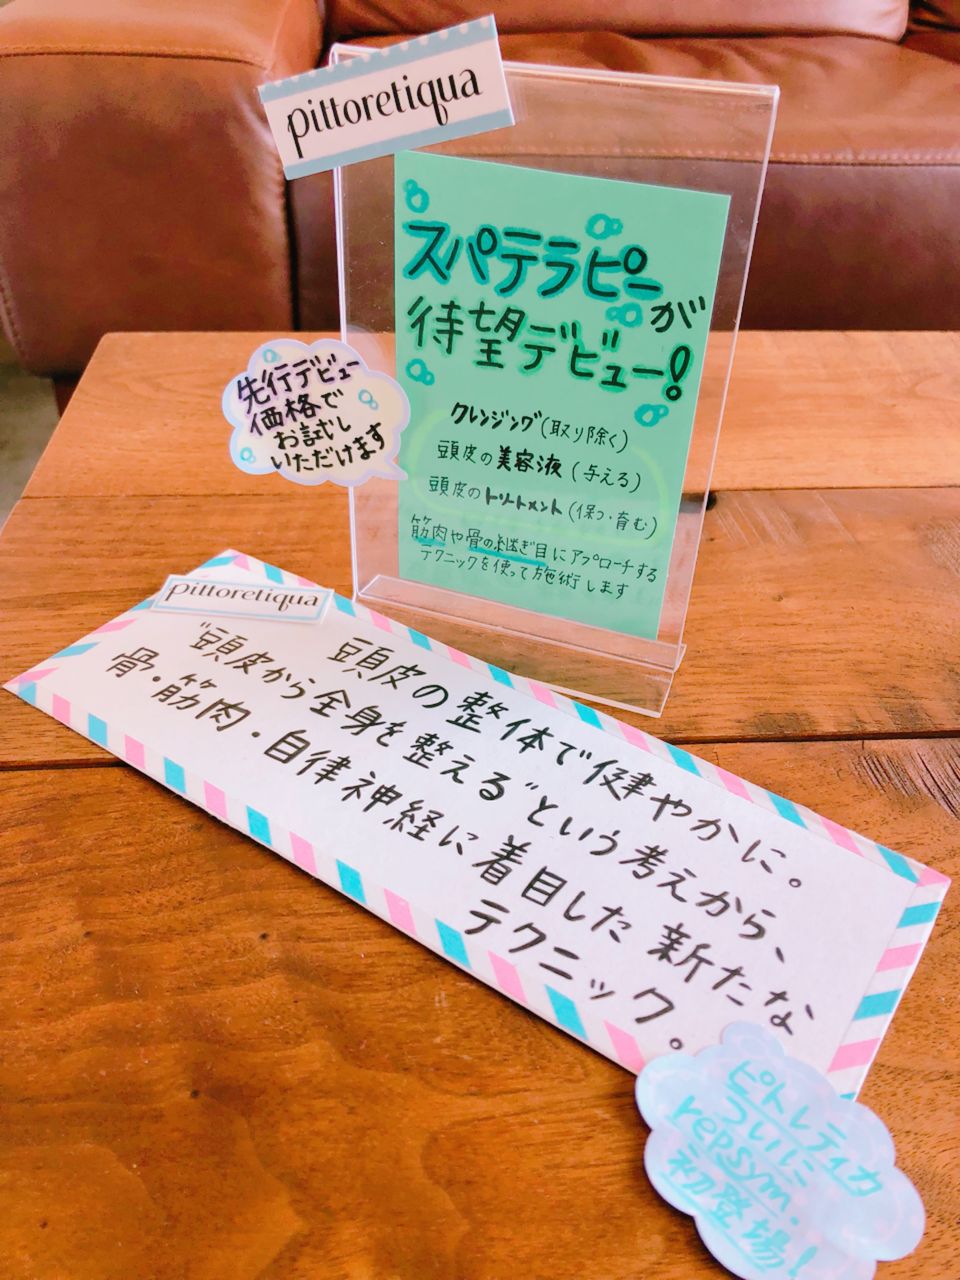 pittoretiqua
スパテラピーが
待望デビュー!
先行デビュー
価格で
お試し
いただけます
クレンジング(取り除く)
頭皮の美容液(与える)
頭皮のトリートメント(保つ・育む)
筋肉や骨の継ぎ目にアプローチする
テクニックを使って施術します
pittoretiqua
頭皮の整体で健やかに。
"頭皮から全身を整える"という考えから、
骨・筋肉・自律神経に着目した新たな
テクニック。
ピトレティカ
ついに
repsym.
初登場!